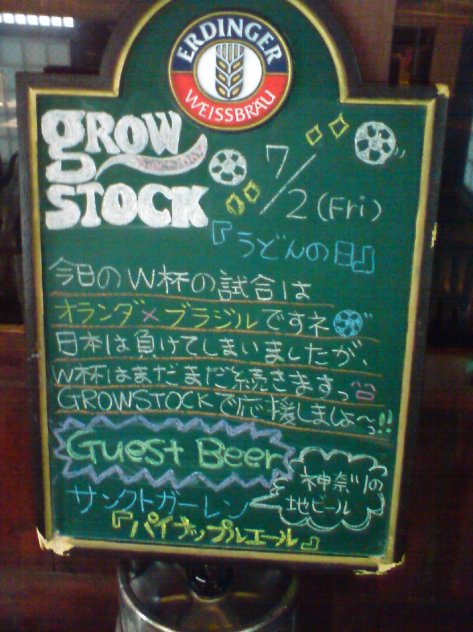 ERDINGER
WEISSBRÄU
GROW
STOCK
7/2(Fri)
『うどんの日』
今日のW杯の試合は
オランダ×ブラジルですネ
日本は負けてしまいましたが、
W杯はまだまだ続きますっ
GROWSTOCKで応援しましょ〜っ!!
Guest Beer
神奈川の
地ビール
サンクトガーレン
『パイナップルエール』